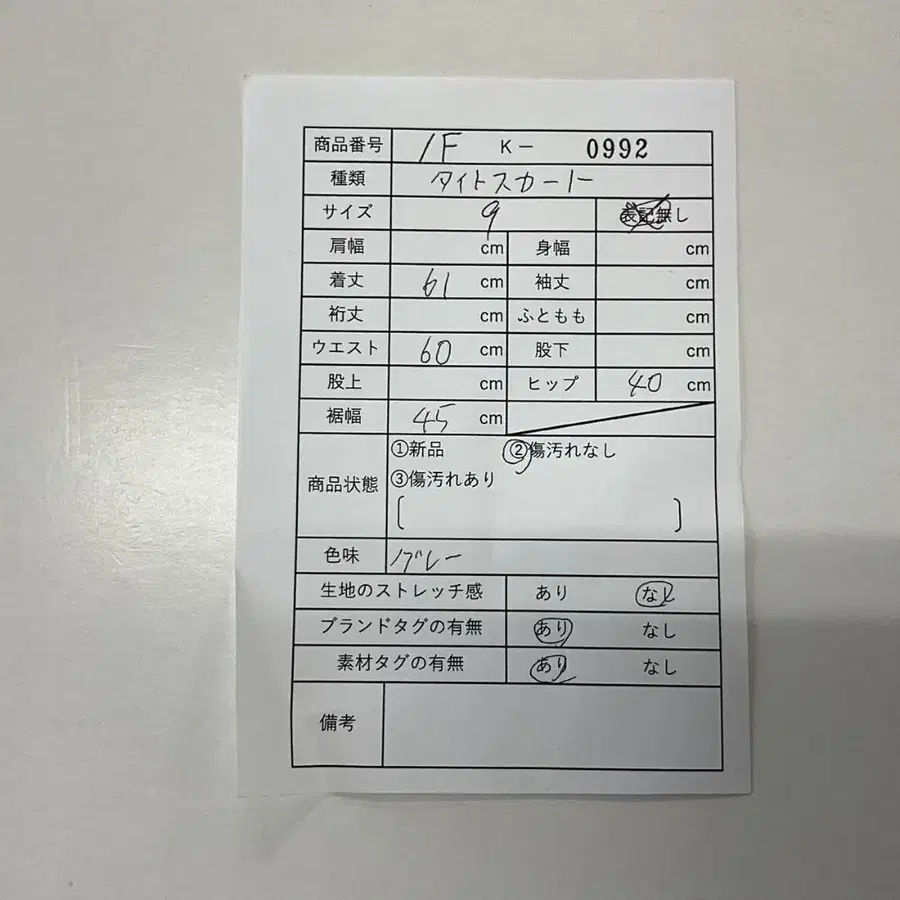 商品番号 1F K- 0992
種類 タイトスカート
サイズ 9 表記無し
肩幅 cm 身幅 cm
着丈 61 cm 袖丈 cm
裄丈 cm ふともも cm
ウエスト 60 cm 股下 cm
股上 cm ヒップ 40 cm
裾幅 45 cm
商品状態 ①新品 ②傷汚れなし
③傷汚れあり
[ ]
色味 グレー
生地のストレッチ感 あり なし
ブランドタグの有無 あり なし
素材タグの有無 あり なし
備考